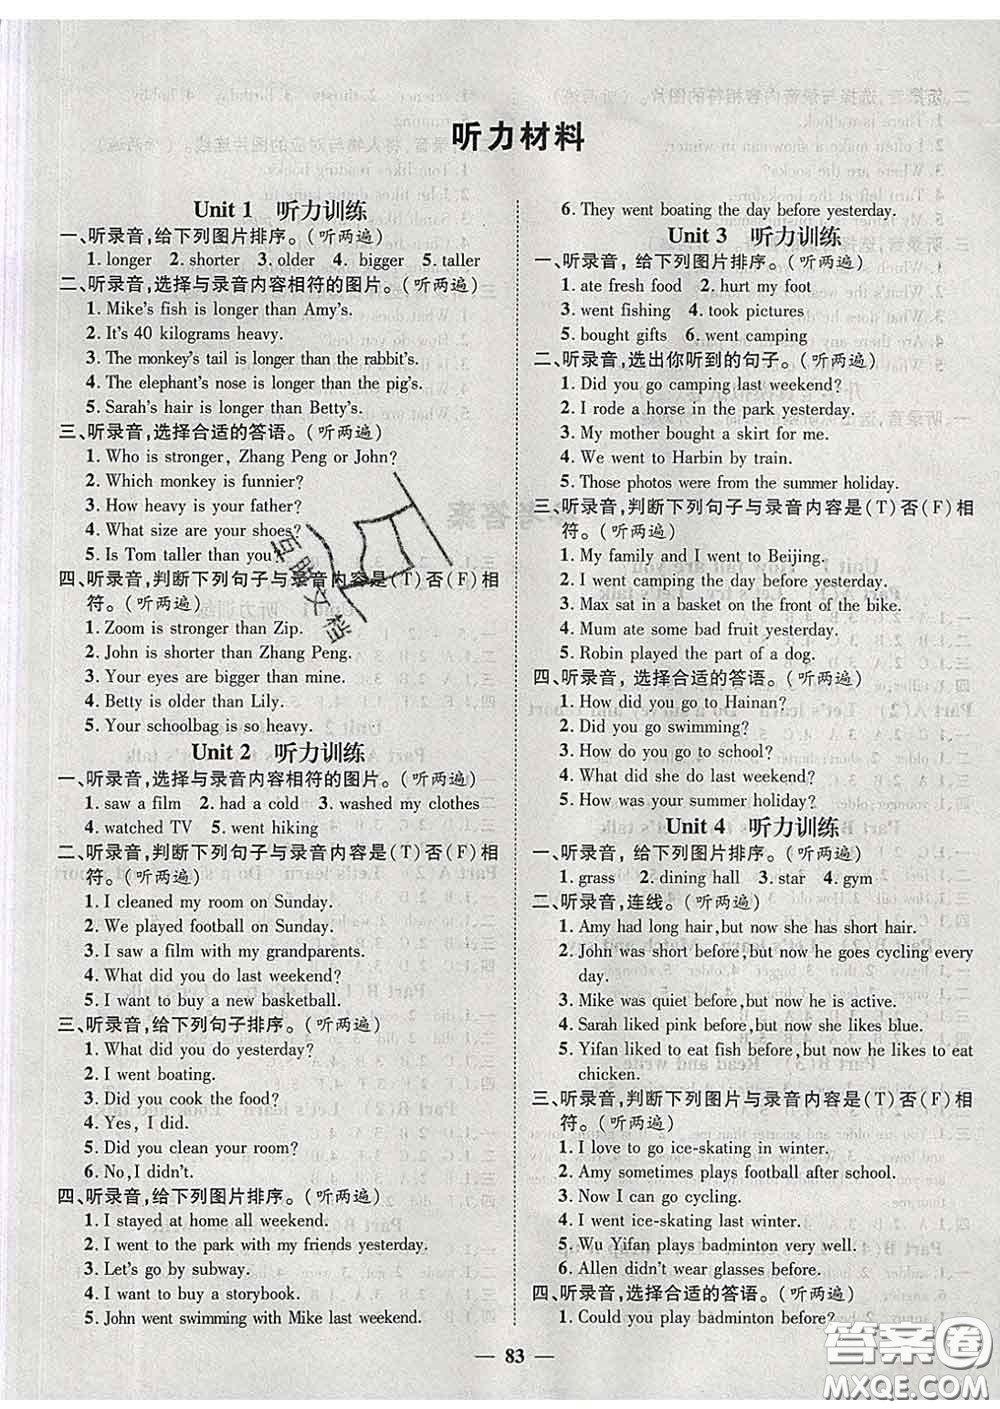 听力材料
Unit 1 听力训练
一、听录音,给下列图片排序。(听两遍)
1. longer 2. shorter 3. older 4. bigger 5. taller
二、听录音,选择与录音内容相符的图片。(听两遍)
1. Mike's fish is longer than Amy's.
2. It's 40 kilograms heavy.
3. The monkey's tail is longer than the rabbit's.
4. The elephant's nose is longer than the pig's.
5. Sarah's hair is longer than Betty's.
三、听录音,选择合适的答语。(听两遍)
1. Who is stronger, Zhang Peng or John?
2. Which monkey is funnier?
3. How heavy is your father?
4. What size are your shoes?
5. Is Tom taller than you
四、听录音,判断下列句子与录音内容是(T)否(F)相
符。(听两遍)
1. Zoom is stronger than Zip.
2. John is shorter than Zhang Peng.
3. Your eyes are bigger than mine.
4. Betty is older than Lily.
5. Your schoolbag is so heavy.
Unit 2 听力训练
一、听录音,选择与录音内容相符的图片。(听两遍)
1. saw a film 2. had a cold 3. washed my clothes
4. watched TV 5. went hiking
二、听录音,判断下列句子与录音内容是(T)否(F)相
符。(听两遍)
1. I cleaned my room on Sunday.
2. We played football on Sunday.
3. I saw a film with my grandparents.
4. What did you do last weekend?
5. I want to buy a new basketball.
三、听录音,给下列句子排序。(听两遍)
1. What did you do yesterday?
2. I went boating.
3. Did you cook the food?
4. Yes, I did.
5. Did you clean your room?
6. No, I didn't.
四、听录音,给下列图片排序。(听两遍)
1. I stayed at home all weekend.
2. I went to the park with my friends yesterday.
3. Let's go by subway.
4. I want to buy a storybook.
5. John went swimming with Mike last weekend.
6. They went boating the day before yesterday.
Unit 3 听力训练
一、听录音, 给下列图片排序。(听两遍)
1. ate fresh food 2. hurt my foot
3. went fishing 4. took pictures
5. bought gifts 6. went camping
二、听录音,选出你听到的句子。(听两遍)
1. Did you go camping last weekend?
2. I rode a horse in the park yesterday.
3. My mother bought a skirt for me.
4. We went to Harbin by train.
5. Those photos were from the summer holiday.
三、听录音,判断下列句子与录音内容是(T)否(F)相
符。(听两遍)
1. My family and I went to Beijing.
2. I went camping the day before yesterday.
3. Max sat in a basket on the front of the bike.
4. Mum ate some bad fruit yesterday.
5. Robin played the part of a dog.
四、听录音, 选择合适的答语。(听两遍)
1. How did you go to Hainan?
2. Did you go swimming?
3. How do you go to school?
4. What did she do last weekend?
5. How was your summer holiday?
Unit 4 听力训练
一、听录音, 给下列图片排序。(听两遍)
1. grass 2. dining hall 3. star 4. gym
二、听录音,连线。(听两遍)
1. Amy had long hair,but now she has short hair.
2. John was short before,but now he goes cycling every
day.
3. Mike was quiet before,but now he is active.
4. Sarah liked pink before,but now she likes blue.
5. Yifan liked to eat fish before,but now he likes to eat
chicken.
三、听录音,判断下列图片与录音内容是(T)否(F)相
符。(听两遍)
1. I love to go ice-skating in winter.
2. Amy sometimes plays football after school.
3. Now I can go cycling.
4. I went ice-skating last winter.
5. Wu Yifan plays badminton very well.
6. Allen didn't wear glasses before.
四、听录音,选择合适的答语。(听两遍)
1. Could you play badminton before?
83
答案圈
MXQE.COM